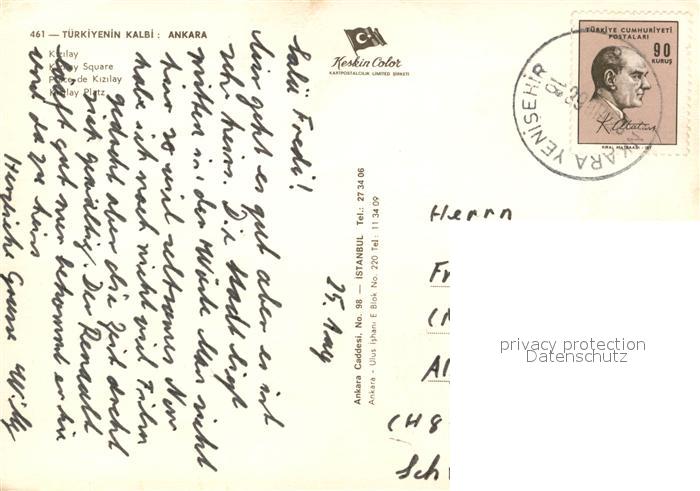 461 — TÜRKİYENİN KALBİ : ANKARA
Kızılay
Kızılay Square
Place de Kızılay
Kızılay Platz
Keskin Color
KARTPOSTALCILIK LIMITED ŞİRKETİ
TÜRKİYE CUMHURİYETİ
POSTALARI
90
KURUŞ
K. Atatürk
ANKARA YENİŞEHİR
Salü Fredi!
Mir geht es gut aber es ist
sehr heiss. Die Stadt liegt
mitten in der Wüste Man sieht
hier so viel seltsames Nur
habe ich noch nicht viel Türkn
gedacht aber die Zeid drckt
mich gewaltig. Der Renault
läuft gut nur bekommt er hin
und da zu heiss
Herzliche Grüsse Willy
25. Aug
Ankara Caddesi, No. 98 — İSTANBUL Tel.: 27 34 06
Ankara - Ulus İşhanı E Blok No. 220 Tel: 11 34 09
Herrn
Fr
Al
(H8
Sch
privacy protection
Datenschutz